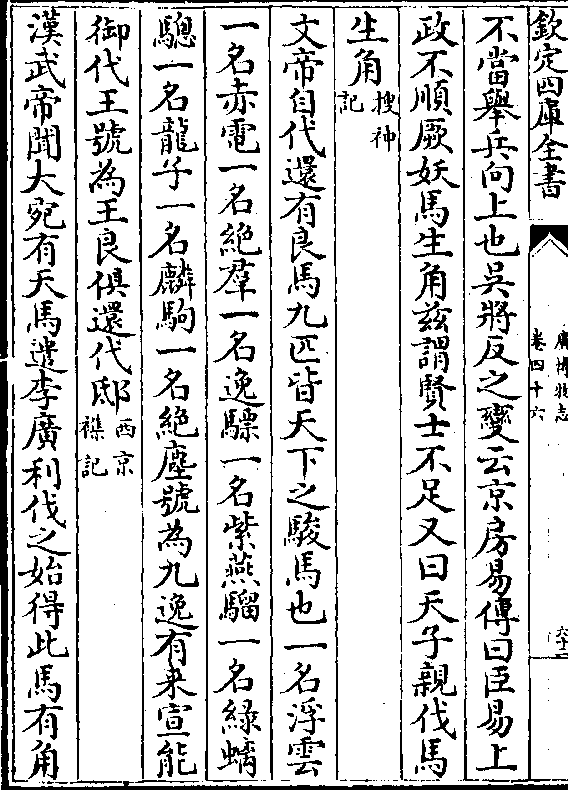 欽定四庫全書
廣博物志
卷四十六
六十二
不當舉兵向上也吳將反之變云京房易傳曰臣易上
政不順厥妖馬生角兹謂賢士不足又曰天子親伐馬
生角搜神記
文帝自代還有良馬九匹皆天下之駿馬也一名浮雲
一名赤電一名絶羣一名逸驃一名紫燕騮一名緑螭
驄一名龍子一名麟駒一名絶塵號為九逸有来宣能
御代王號為王良俱還代邸西京襍記
漢武帝聞大宛有天馬遣李廣利伐之始得此馬有角